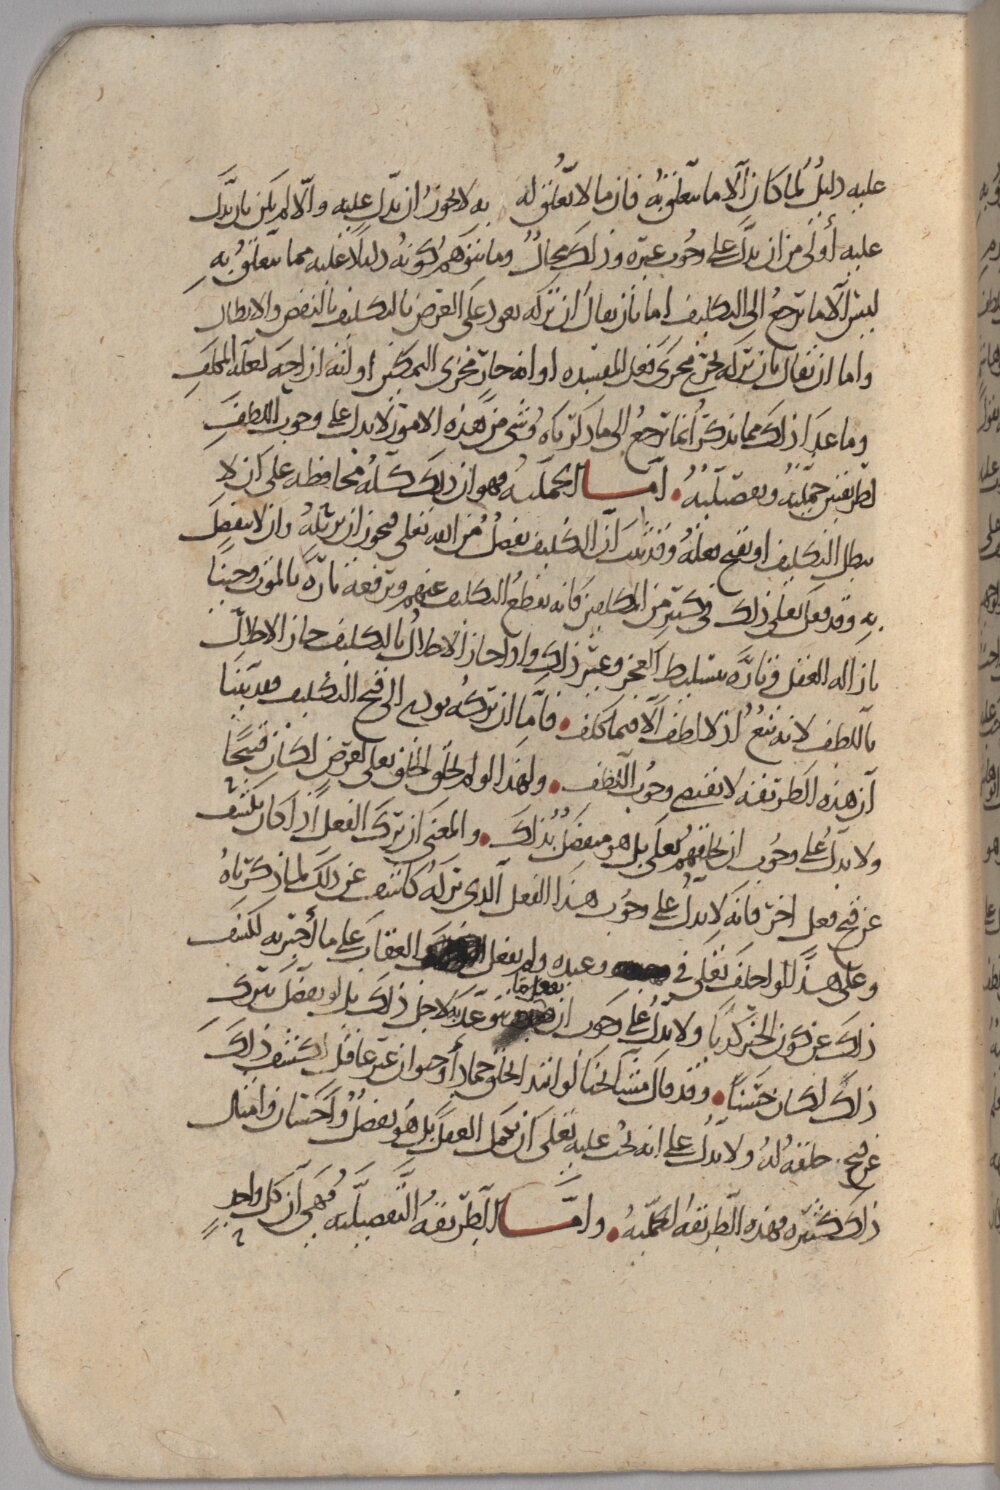 عليه دليلٌ لما كان إلا ما يتعلق به فان ما لا تعلق له به لا يجوز ان يدل عليه والا لم يكن بان يدل
عليه أولى من ان يدل على وجوب غيره وذلك محال وما يتوهم كونه دليلا عليه مما يتعلق به
ليس الا ما يرجع الى التكليف اما بان يقال ان تركه يعود على الغرض بالتكليف بالنقض والابطال
واما ان يقال بان تركه يجري مجرى فعل المفسده او انه جار مجرى التمكين او انه ازاحة لعلة المكلف
وما عدا ذلك مما يذكر انما يرجع الى ما ذكرناه وشيء من هذه الامور لا يدل على وجوب اللطف
لطريقين جملية وتفصيلية. امـا الجملية فهو ان ذلك كله محافظه على ان لا
يبطل التكليف او يقبح فعله وقد ثبت ان التكليف تفضل من الله تعلى فيجوز ان يزيله وان لا يتفضل
به وقد فعل تعلى ذلك في كثير من المكلفين فانه يقطع التكليف عنهم ويرفعه تارة بالموت وحينا
بازاله العقل وتارة بتسليط العجز وغير ذلك واذا جاز الاخلال بالتكليف جاز الاخلال
باللطف لانه تبع اذ لا لطف الا فيما كلف. فاما ان تركه يودي الى قبح التكليف فقد بينا
ان هذه الطريقه لا تقتضي وجوب اللطف. ولهذا لو لم يخلق الخلق تعلى لغرض لكان قبيحا
ولا يدل على وجوب ان يخلقهم تعلى بل هو متفضل بذلك. والمعنى ان ترك الفعل اذا كان يكشف
عن قبح فعل اخر فانه لا يدل على وجوب هذا الفعل الذي تركه كاشف عن ذلك لما ذكرناه
وعلى هذا لو اخلف تعلى في وعيده ولم يفعل العقاب على ما أخبر به لكشف
ذلك عن كون الخبر كذبا ولا يدل على وجوب ان يفعل ما توعد به لاجل ذلك بل لو تفضل بترك
ذلك لكان حسنا. وقد قال مشايخنا لو ابتدا الخلق جمادا او حيوان غير عاقل لكشف ذلك
عن قبح خلقه له ولا يدل على انه يجب عليه تعلى ان يكمل العقل بل هو تفضل واحسان وامثال
ذلك كثيره فهذه الطريقه الجملية. وامـا الطريقة التفصيلية فهي ان كل واحد